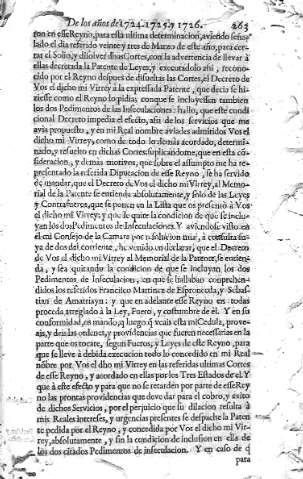 De los años de 1724. 1725. y 1726. 263
ron en esse Reyno, para esta ultima determinacion, aviendo señalado
el dia referido veinte y tres de Marzo de este año, para cerrar
el Solio, y disolver dichas Cortes, con la advertencia de llevar à
ellas decretada la Patente de Leyes, y executandolo assi, reconocido
por el Reyno despues de disueltas las Cortes, el Decreto de
Vos el dicho mi Virrey à la expressada Patente, que decia se hiciesse
como el Reyno lo pidia, con que se incluyessen tambien
los dos Pedimentos de las Insculaciones: hallo, que este condicional
Decreto impedia el efecto, assi de los servicios que me
avia propuesto, y en mi Real nombre aviades admitidos Vos el
dicho mi Virrey, como de todo lo demàs acordado, determinado,
y resuelto en dichas Cortes, suplicandome, que en esta consideracion,
y demàs motivos, que sobre el assumpto me ha representado
la referida Diputacion de esse Reyno, se ha servido
de mandar, que el Decreto de Vos el dicho mi Virrey, al Memorial
de la Patente se entienda absolutamente, y solo de las Leyes
y Contrafueros, que se ponen en la Lista que os presentò à Vos
el dicho mi Virrey; y que de quite la condicion de que se incluyan
los dos Pedimentos de Insculaciones. Y aviendose visto en
el mi Consejo de la Camara por resolucion mia, à consulta suya
de dos del corriente, he venido en declarar, que el Decreto
de Vos el dicho mi Virrey al Memorial de la Patente, se entienda,
y sea quitando la condicion de que se incluyan los dos
Pedimentos de Insculacion, en que se hallaban comprehendidos
los referidos Francisco Martinez de Espronceda, y Sebastian
de Amatriayn: y que en adelante esse Reyno en todas
proceda, arreglado à la Ley, Fuero, y costumbre de èl. Y en su
conformidad, os mando, q̃ luego q̃ veais esta mi Cedula, proveais,
y deis las ordenes, y providencias que fueren necessarias en la
parte que os tocare, segun Fueros, y Leyes de esse Reyno, para
que se lleve à debida execucion todo lo concedido en mi Real
nombre por Vos el dho mi Virrey en las referidas ultimas Cortes
de esse Reyno, y acordado en ellas por los Tres Estados de el: Y
que à este efecto y para que no se retarden por parte de esse Reyno
las prontas providencias que deve dar para el cobro, y exito
de dichos Servicios, por el perjuicio que su dilacion resulta à
mis Reales intereses, y urgencias presentes se despache la Patente
pedida por el Reyno, y concedida por Vos el dicho mi Virrey,
absolutamente, y sin la condicion de inclusion en ella de
los dos citados Pedimentos de insculacion. Y en caso de q̃
para